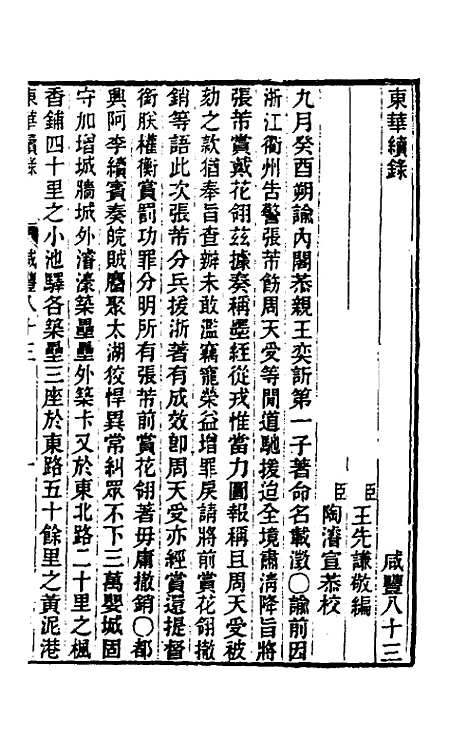 東華續錄　咸豐八十三
臣王先謙敬編
臣陶濬宣恭校
九月癸酉朔諭內閣恭親王奕訢第一子著命名載澂○諭前因
浙江衢州告警張芾飭周天受等間道馳援迨全境肅清降旨將
張芾賞戴花翎茲據奏稱墨絰從戎惟當力圖報稱且周天受被
劾之款猶奉旨查辦未敢濫竊寵榮益增罪戾請將前賞花翎撤
銷等語此次張芾分兵援浙著有成效卽周天受亦經賞還提督
銜朕權衡賞罰功罪分明所有張芾前賞花翎著毋庸撤銷○都
興阿李續賓奏皖賊麕聚太湖狡悍異常糾眾不下三萬嬰城固
守加增城牆城外濬濠築壘壘外築卡又於東北路二十里之楓
香鋪四十里之小池驛各築壘三座於東路五十餘里之黃泥港
東華續錄　咸豐八十三　一